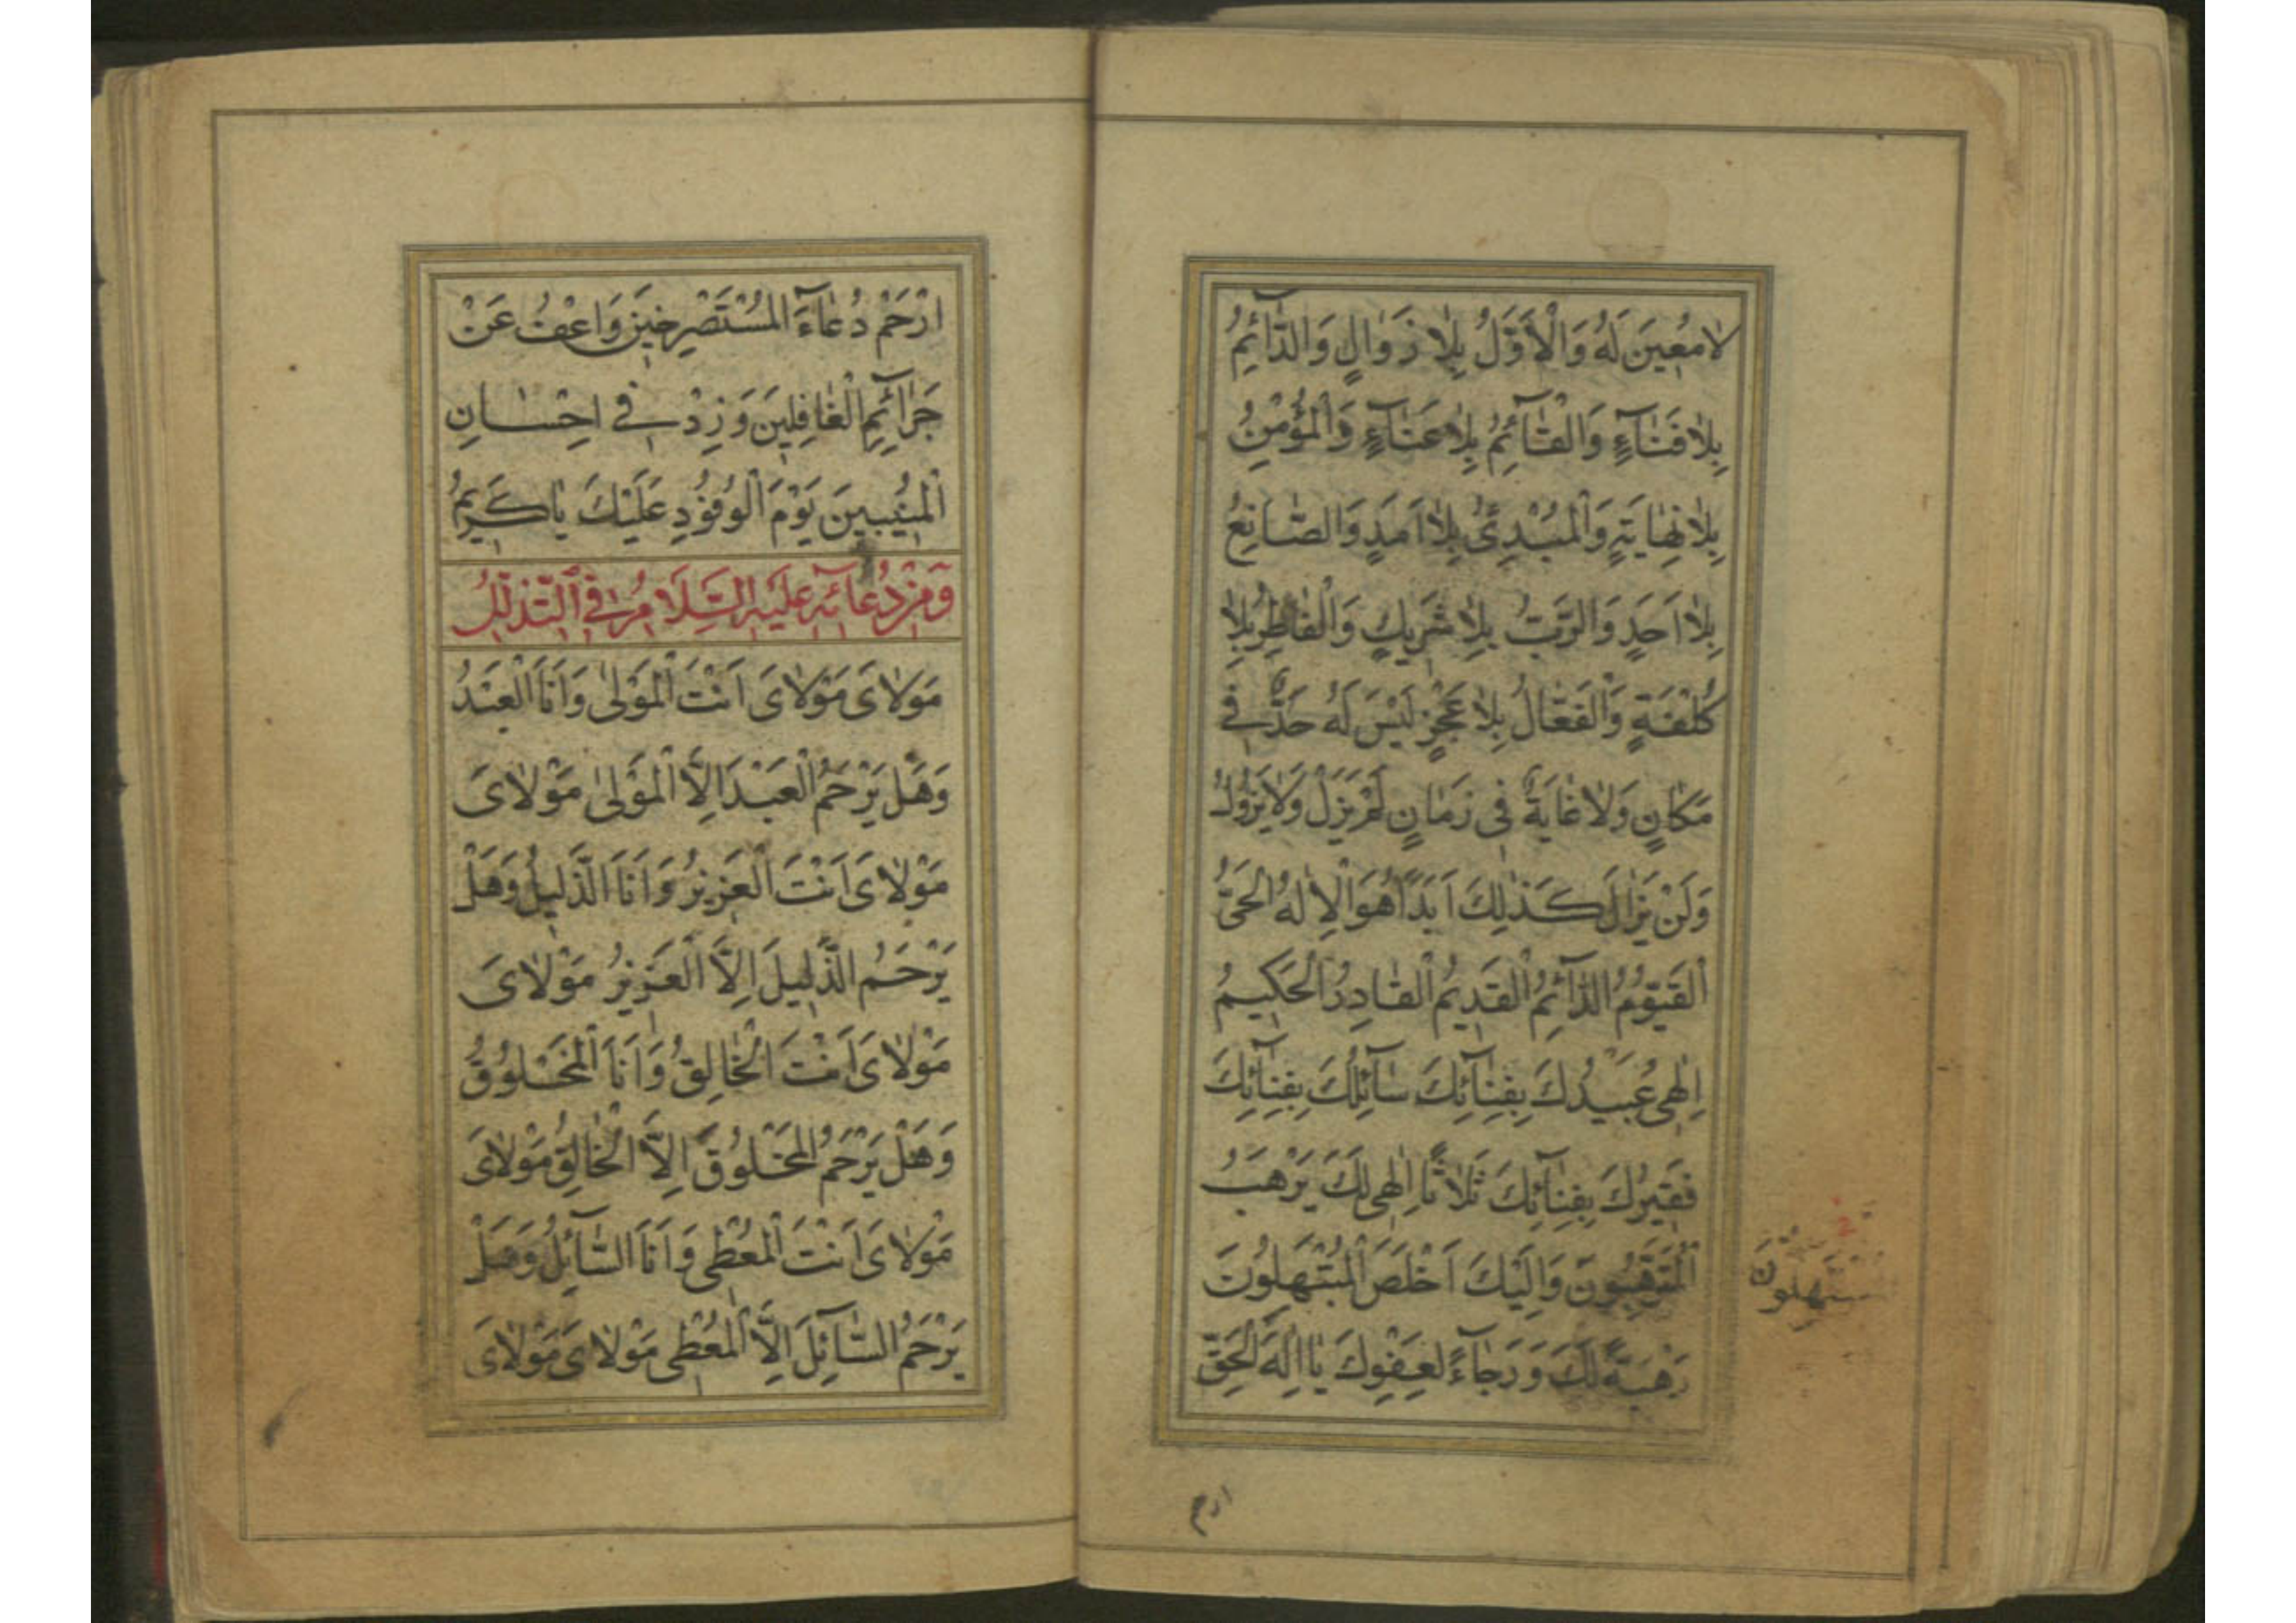 لَا مُعِينَ لَهُ وَالْأَوَّلُ بِلَا زَوَالٍ وَالدَّآئِمُ
بِلَا فَنَآءٍ وَالْقَآئِمُ بِلَا عَنَآءٍ وَالْمُؤْمِنُ
بِلَا نِهَايَةٍ وَالْمُبْدِئُ بِلَا اَمَدٍ وَالصَّانِعُ
بِلَا اَحَدٍ وَالرَّبُّ بِلَا شَرِيكٍ وَالْفَاطِرُ بِلَا
كُلْفَةٍ وَالْفَعَّالُ بِلَا عَجْزٍ لَيْسَ لَهُ حَدٌّ فِي
مَكَانٍ وَلَا غَايَةٌ فِي زَمَانٍ لَمْ يَزَلْ وَلَا يَزُولُ
وَلَنْ يَزَالَ كَذٰلِكَ اَبَدًا هُوَ الْاِلٰهُ الْحَيُّ
الْقَيُّومُ الدَّآئِمُ الْقَدِيمُ الْقَادِرُ الْحَكِيمُ
اِلٰهِي عُبَيْدُكَ بِفِنَآئِكَ سَآئِلُكَ بِفِنَآئِكَ
فَقِيرُكَ بِفِنَآئِكَ ثَلَاثًا اِلٰهِي لَكَ يَرْهَبُ
الْمُتَرَهِّبُونَ وَاِلَيْكَ اَخْلَصَ الْمُبْتَهِلُونَ
رَهْبَةً لَكَ وَرَجَاءً لِعَفْوِكَ يَا اِلٰهَ الْحَقِّ
ارحم
ارْحَمْ دُعَآءَ الْمُسْتَصْرِخِينَ وَاعْفُ عَنْ
جَرَآئِمِ الْغَافِلِينَ وَزِدْ فِي اِحْسَانِ
الْمُنِيبِينَ يَوْمَ الْوُفُودِ عَلَيْكَ يَا كَرِيمُ
وَمِنْ دُعَآئِهِ عَلَيْهِ السَّلَامُ فِي التَّذَلُّلِ
مَوْلَايَ مَوْلَايَ اَنْتَ الْمَوْلٰى وَاَنَا الْعَبْدُ
وَهَلْ يَرْحَمُ الْعَبْدَ اِلَّا الْمَوْلٰى مَوْلَايَ
مَوْلَايَ اَنْتَ الْعَزِيزُ وَاَنَا الذَّلِيلُ وَهَلْ
يَرْحَمُ الذَّلِيلَ اِلَّا الْعَزِيزُ مَوْلَايَ
مَوْلَايَ اَنْتَ الْخَالِقُ وَاَنَا الْمَخْلُوقُ
وَهَلْ يَرْحَمُ الْمَخْلُوقَ اِلَّا الْخَالِقُ مَوْلَايَ
مَوْلَايَ اَنْتَ الْمُعْطِي وَاَنَا السَّآئِلُ وَهَلْ
يَرْحَمُ السَّآئِلَ اِلَّا الْمُعْطِي مَوْلَايَ مَوْلَايَ